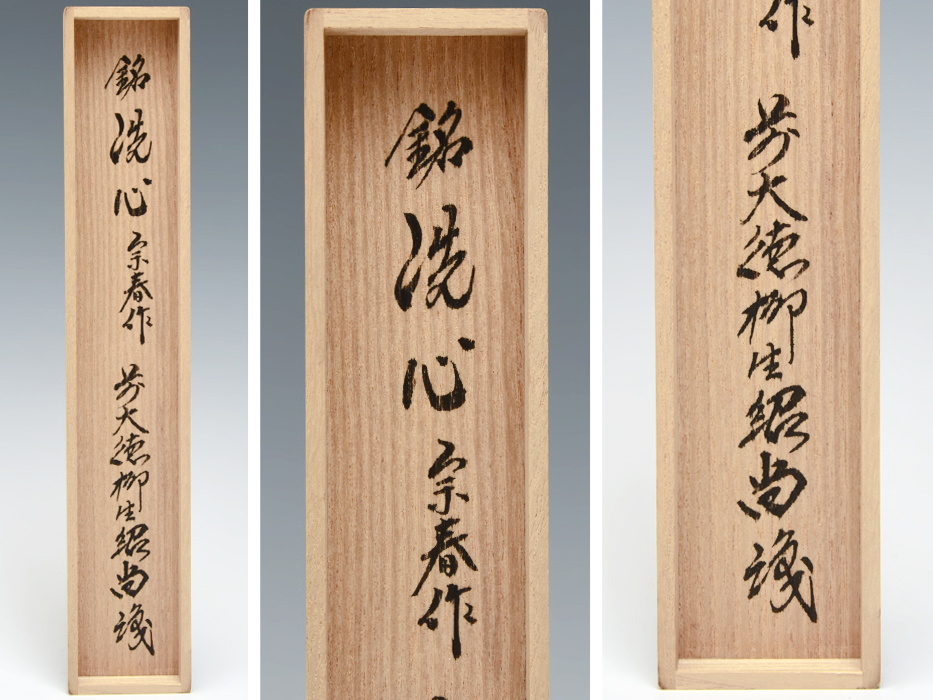 銘 洗心 宗春作 前大徳柳生紹尚識
銘 洗心 宗春作
作 前大徳柳生紹尚識